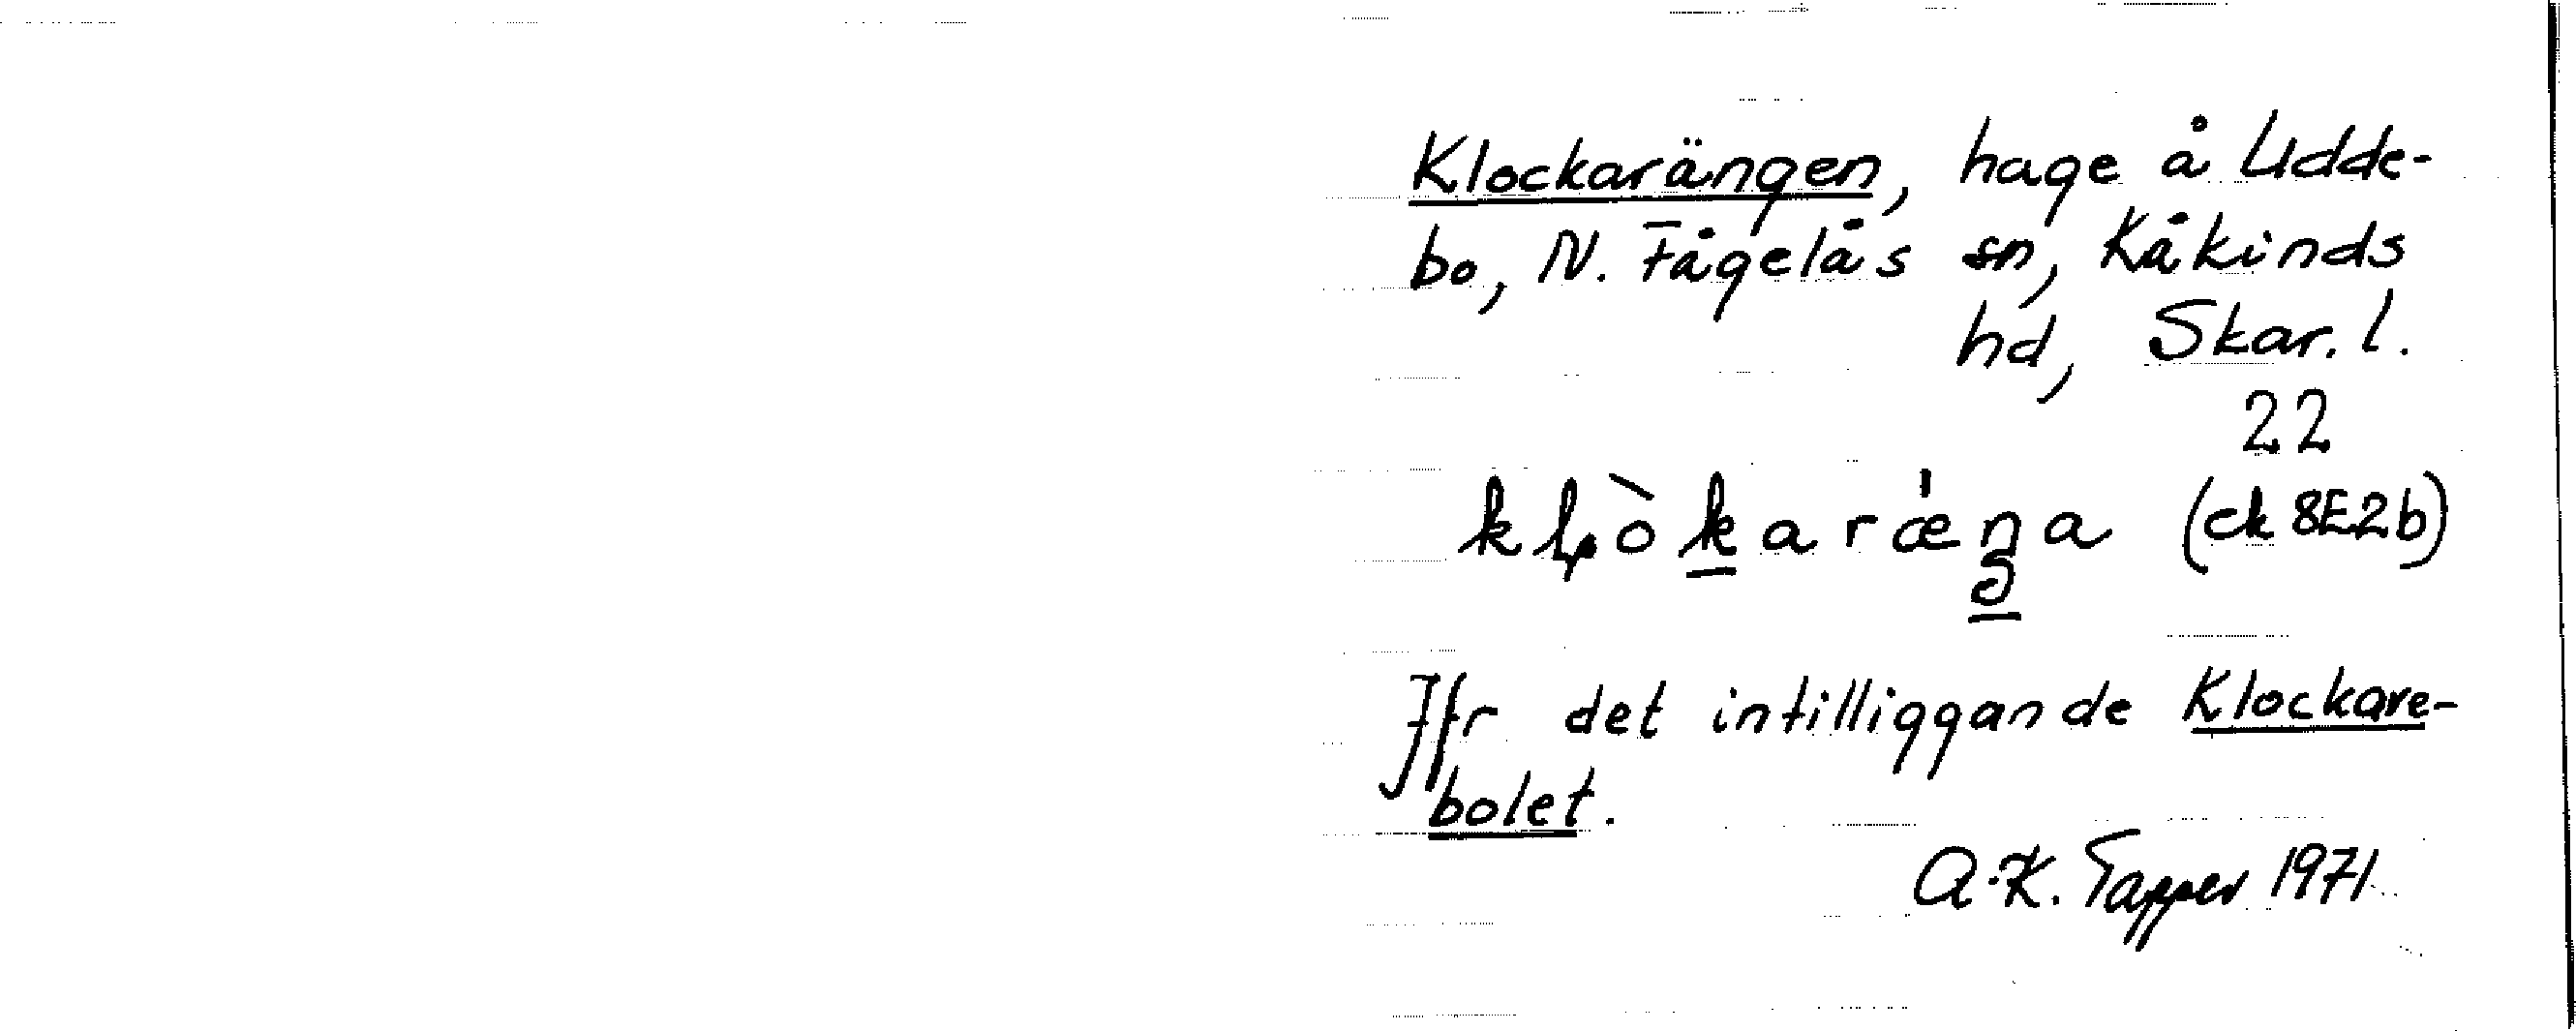 Klockarängen, hage å Udde-
bo, N. Fågelås sn, Kåkinds
hd, Skar. l.
22
kɭòkaræ̍ŋa (ek 8E2b)
Jfr det intilliggande Klockare-
bolet.
A-K. Tapper 1971